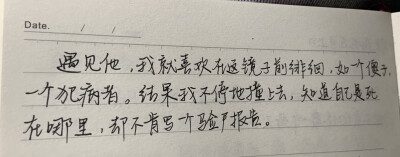 Date. / /
遇见他，我就喜欢在这镜子前徘徊，如一个傻子，
一个犯病者。结果我不停地撞上去，知道自己是死
在哪里，却不肯写一个验尸报告。